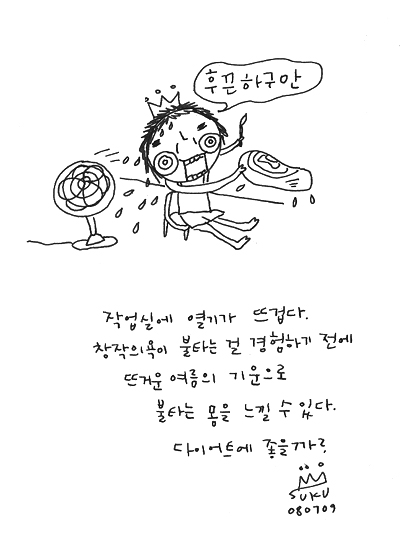 후끈하구만
작업실에 열기가 뜨겁다.
창작의욕이 불타는 걸 경험하기 전에
뜨거운 여름의 기운으로
불타는 몸을 느낄 수 있다.
다이어트에 좋을까?
SUKU
080709